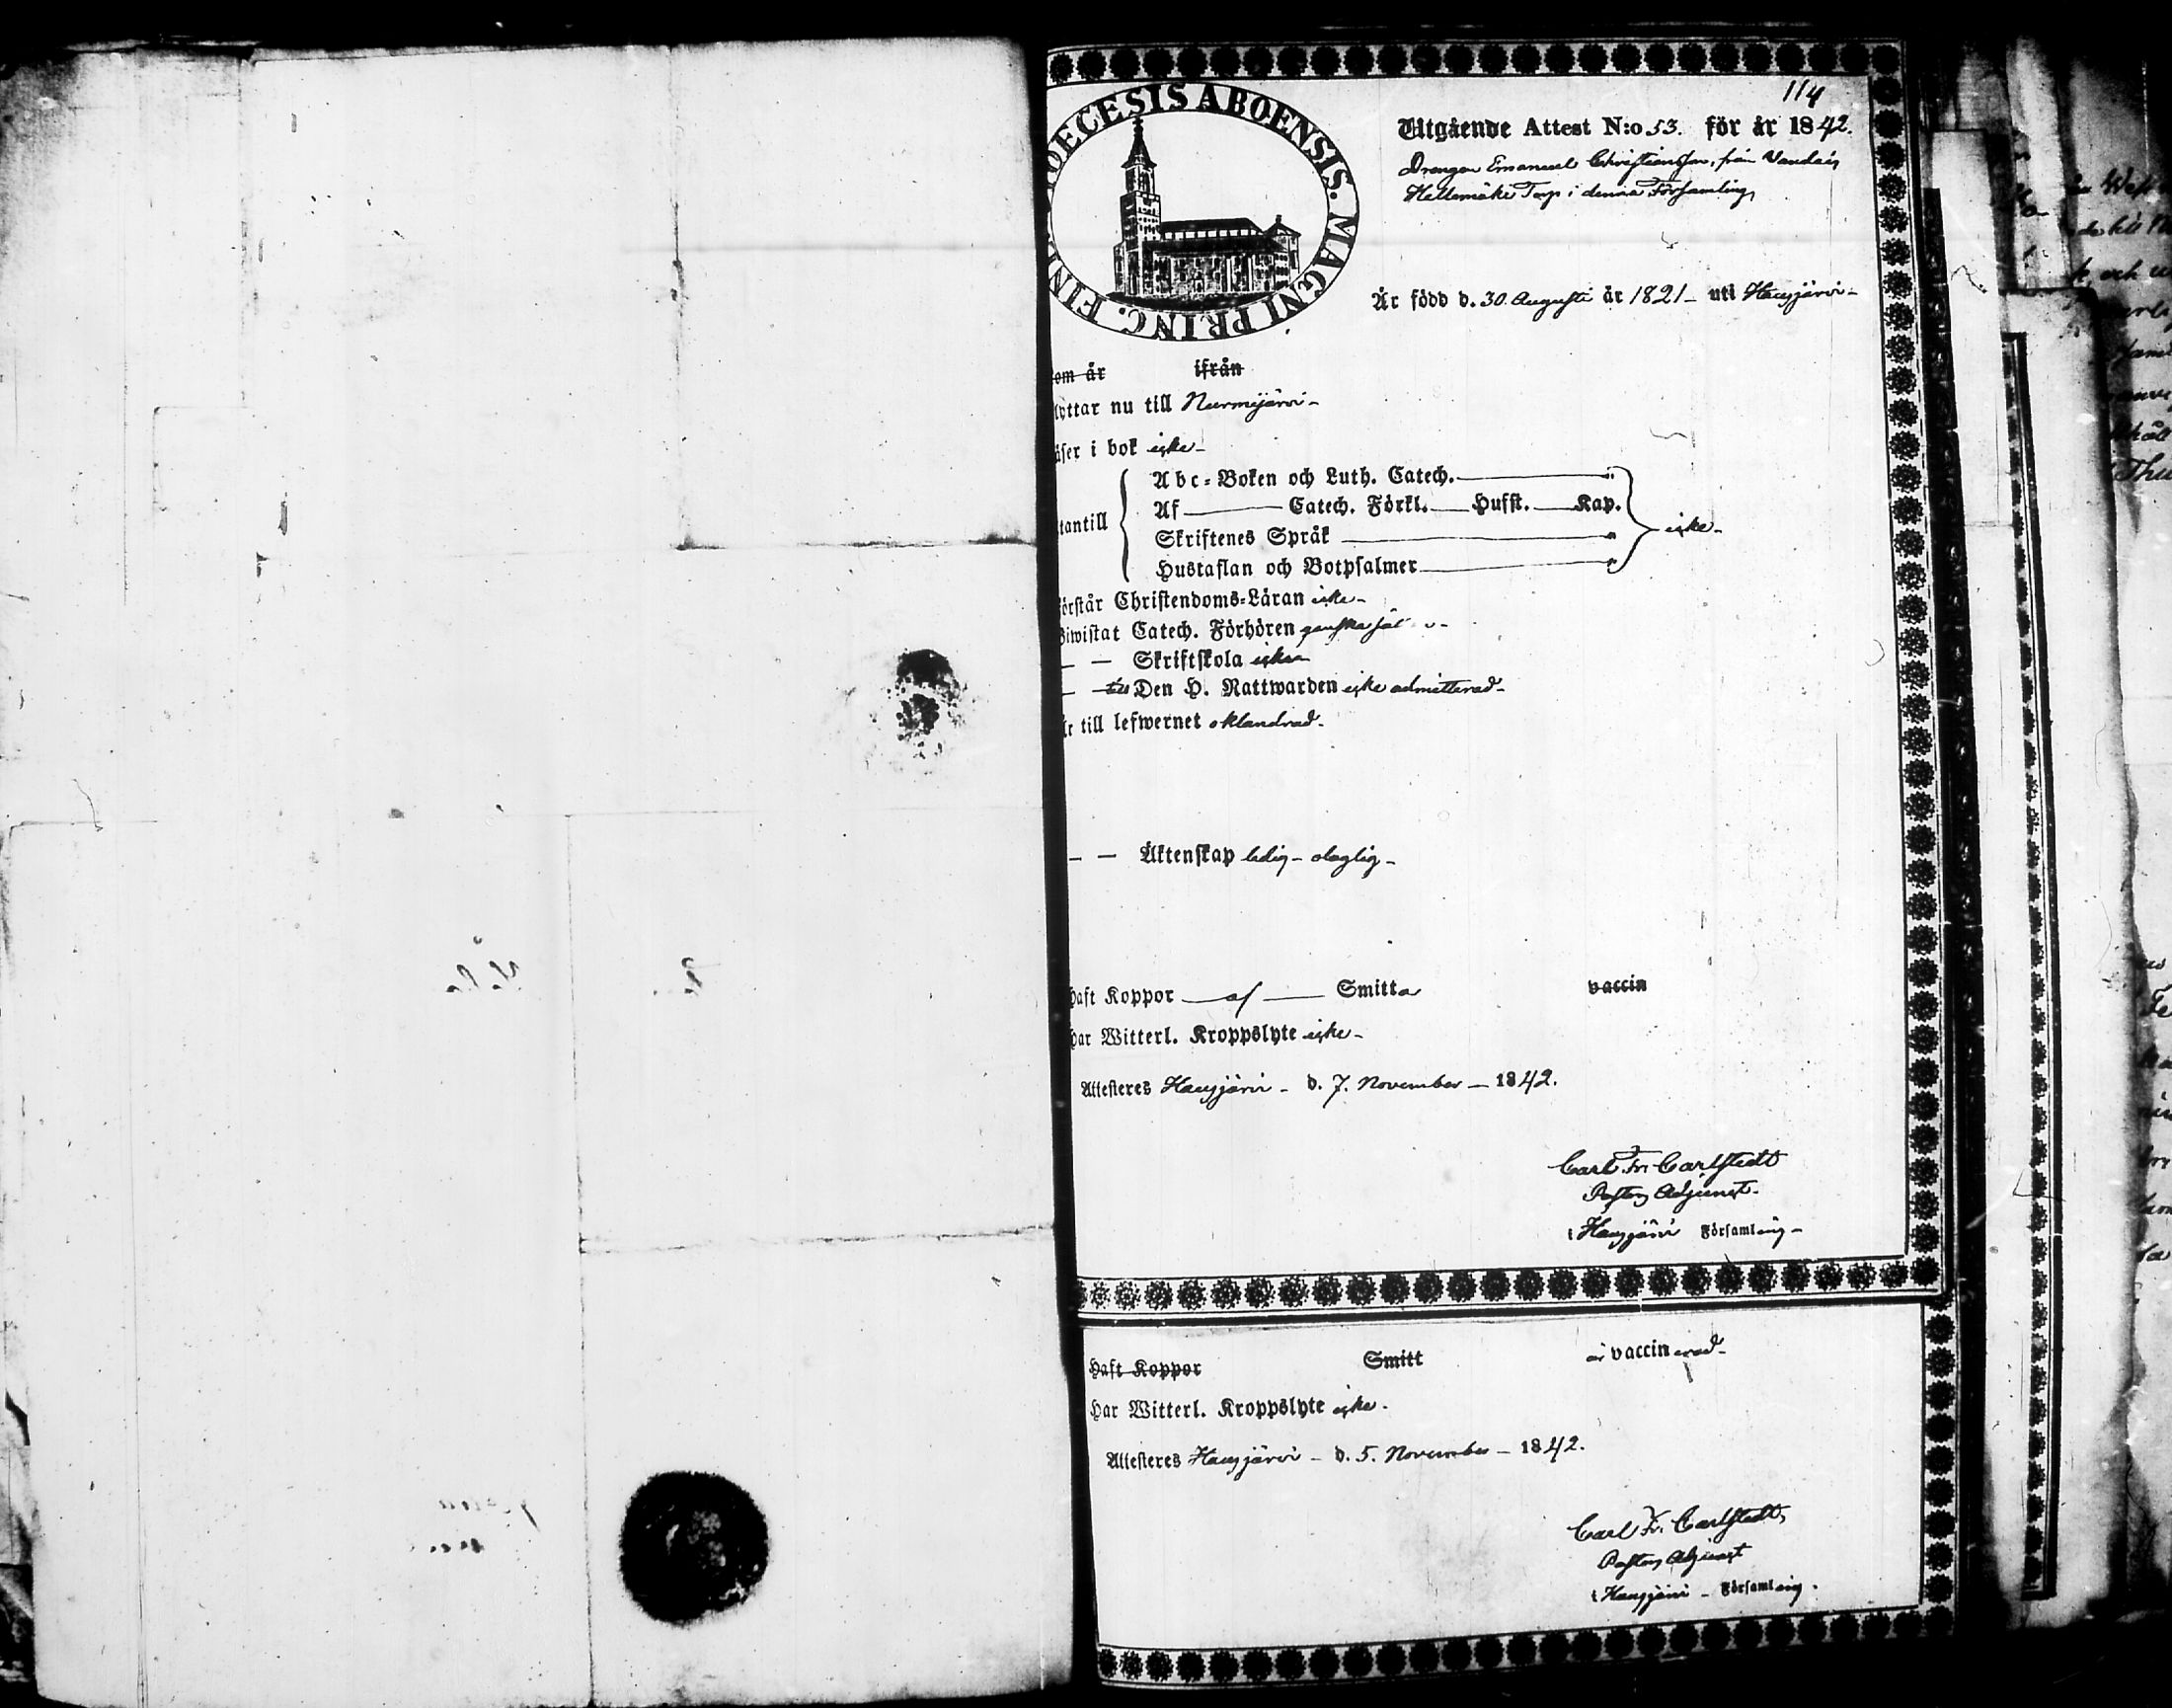 114
DECESIS ABOENSIS. MAGNI PRINC. FIN
Utgående Attest N:o 53. för år 1842.
Drengen Emanuel Christiansson, från Vandais
Hellemäki Torp i denna Församling,
Är född d. 30 Augusti år 1821 – uti Hausjärvi –
om år ifrån
lyttar nu till Nurmijärvi –
äser i bok icke –
tantill
Abc-Boken och Luth. Catech.
Af Catech. Förkl. Husst. Kap.
icke –
Skriftenes Språk
Hustaflan och Botpsalmer
örstår Christendoms-Läran icke –
Biwistat Catech. Förhören ganska
– – Skriftskola icke
– till Den H. Nattwarden icke admitterad –
är till lefwernet oklandrad –
– – Äktenskap ledig – olaglig –
haft Koppor af Smitta vaccin
har Witterl. Kroppslyte icke –
Attesteres Hausjärvi – d. 7. November – 1842.
Carl Fr. Carlstedt
Pastors Adjunct.
i Hausjärvi Församling –
Haft Koppor Smitt är vaccinerad –
Har Witterl. Kroppslyte icke.
Attesteres Hausjärvi – d. 5. November – 1842.
Carl Fr. Carlstedt,
Pastors Adjunct
i Hausjärvi – Församling.